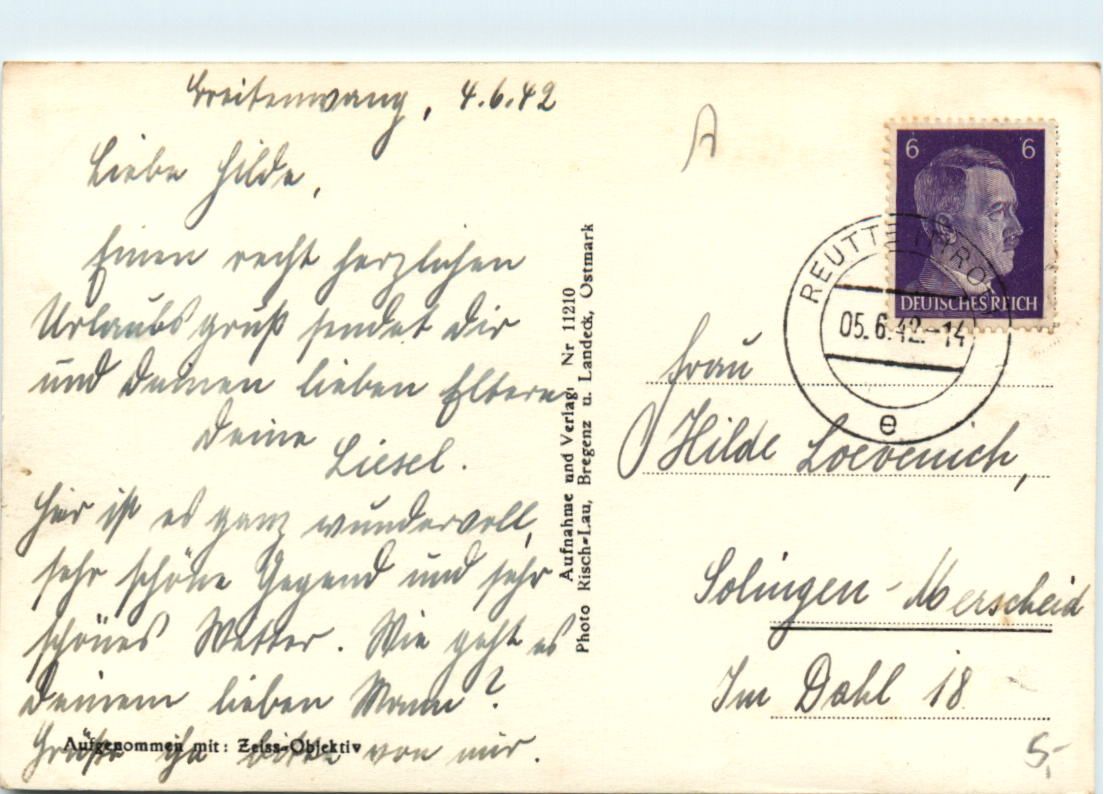 Breitenwang, 4.6.42
Liebe Hilde,
Einen recht herzlichen
Urlaubsgruß sendet dir
und deinen lieben Eltern
deine
Liesel.
Hier ist es ganz wundervoll,
sehr schöne Gegend und sehr
schönes Wetter. Wie geht es
deinem lieben Mann?
Grüße ihn bitte von mir.
Aufgenommen mit: Zeiss-Objektiv
Aufnahme und Verlag: Nr 11210
Photo Risch-Lau, Bregenz u. Landeck, Ostmark
6 6
DEUTSCHES REICH
REUTTE (TIROL)
05.6.42.-14
e
Frau
Hilde Loevenich,
Solingen-Merscheid
Im Dahl 18
5,-